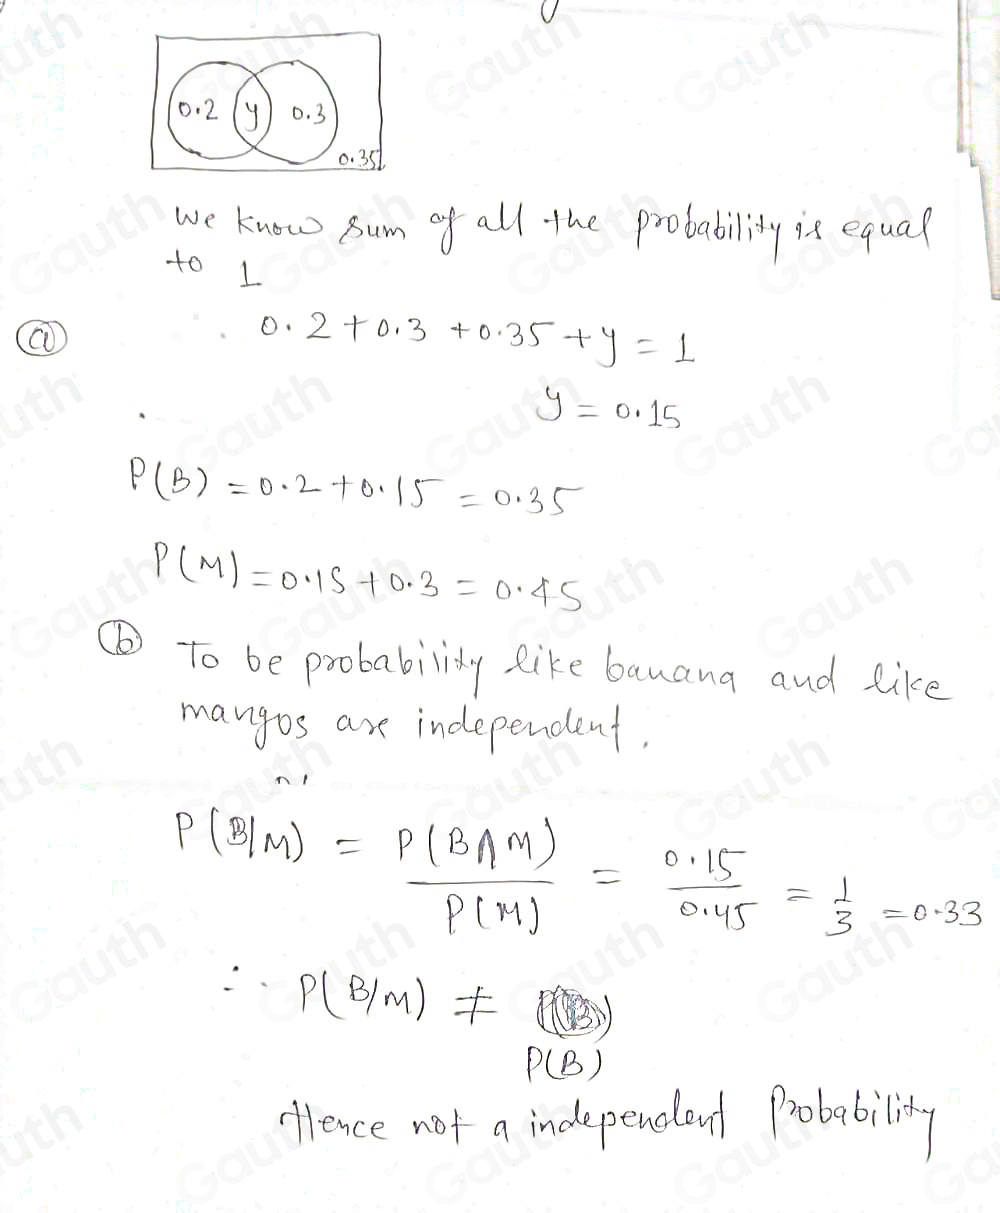 0.2 y 0.3
0.35
We know sum of all the probability is equal
to 1
ⓐ 0.2 + 0.3 + 0.35 + y = 1
y = 0.15
P(B) = 0.2 + 0.15 = 0.35
P(M) = 0.15 + 0.3 = 0.45
ⓑ To be probability like banana and like
mangos are independent.
P(B/M) = P(B∩M) / P(M) = 0.15 / 0.45 = 1/3 = 0.33
∴ P(B/M) ≠
P(B)
Hence not a independent Probability